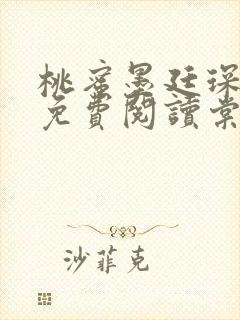 桃蜜墨廷琛
免費閱讀棠
沙菲克